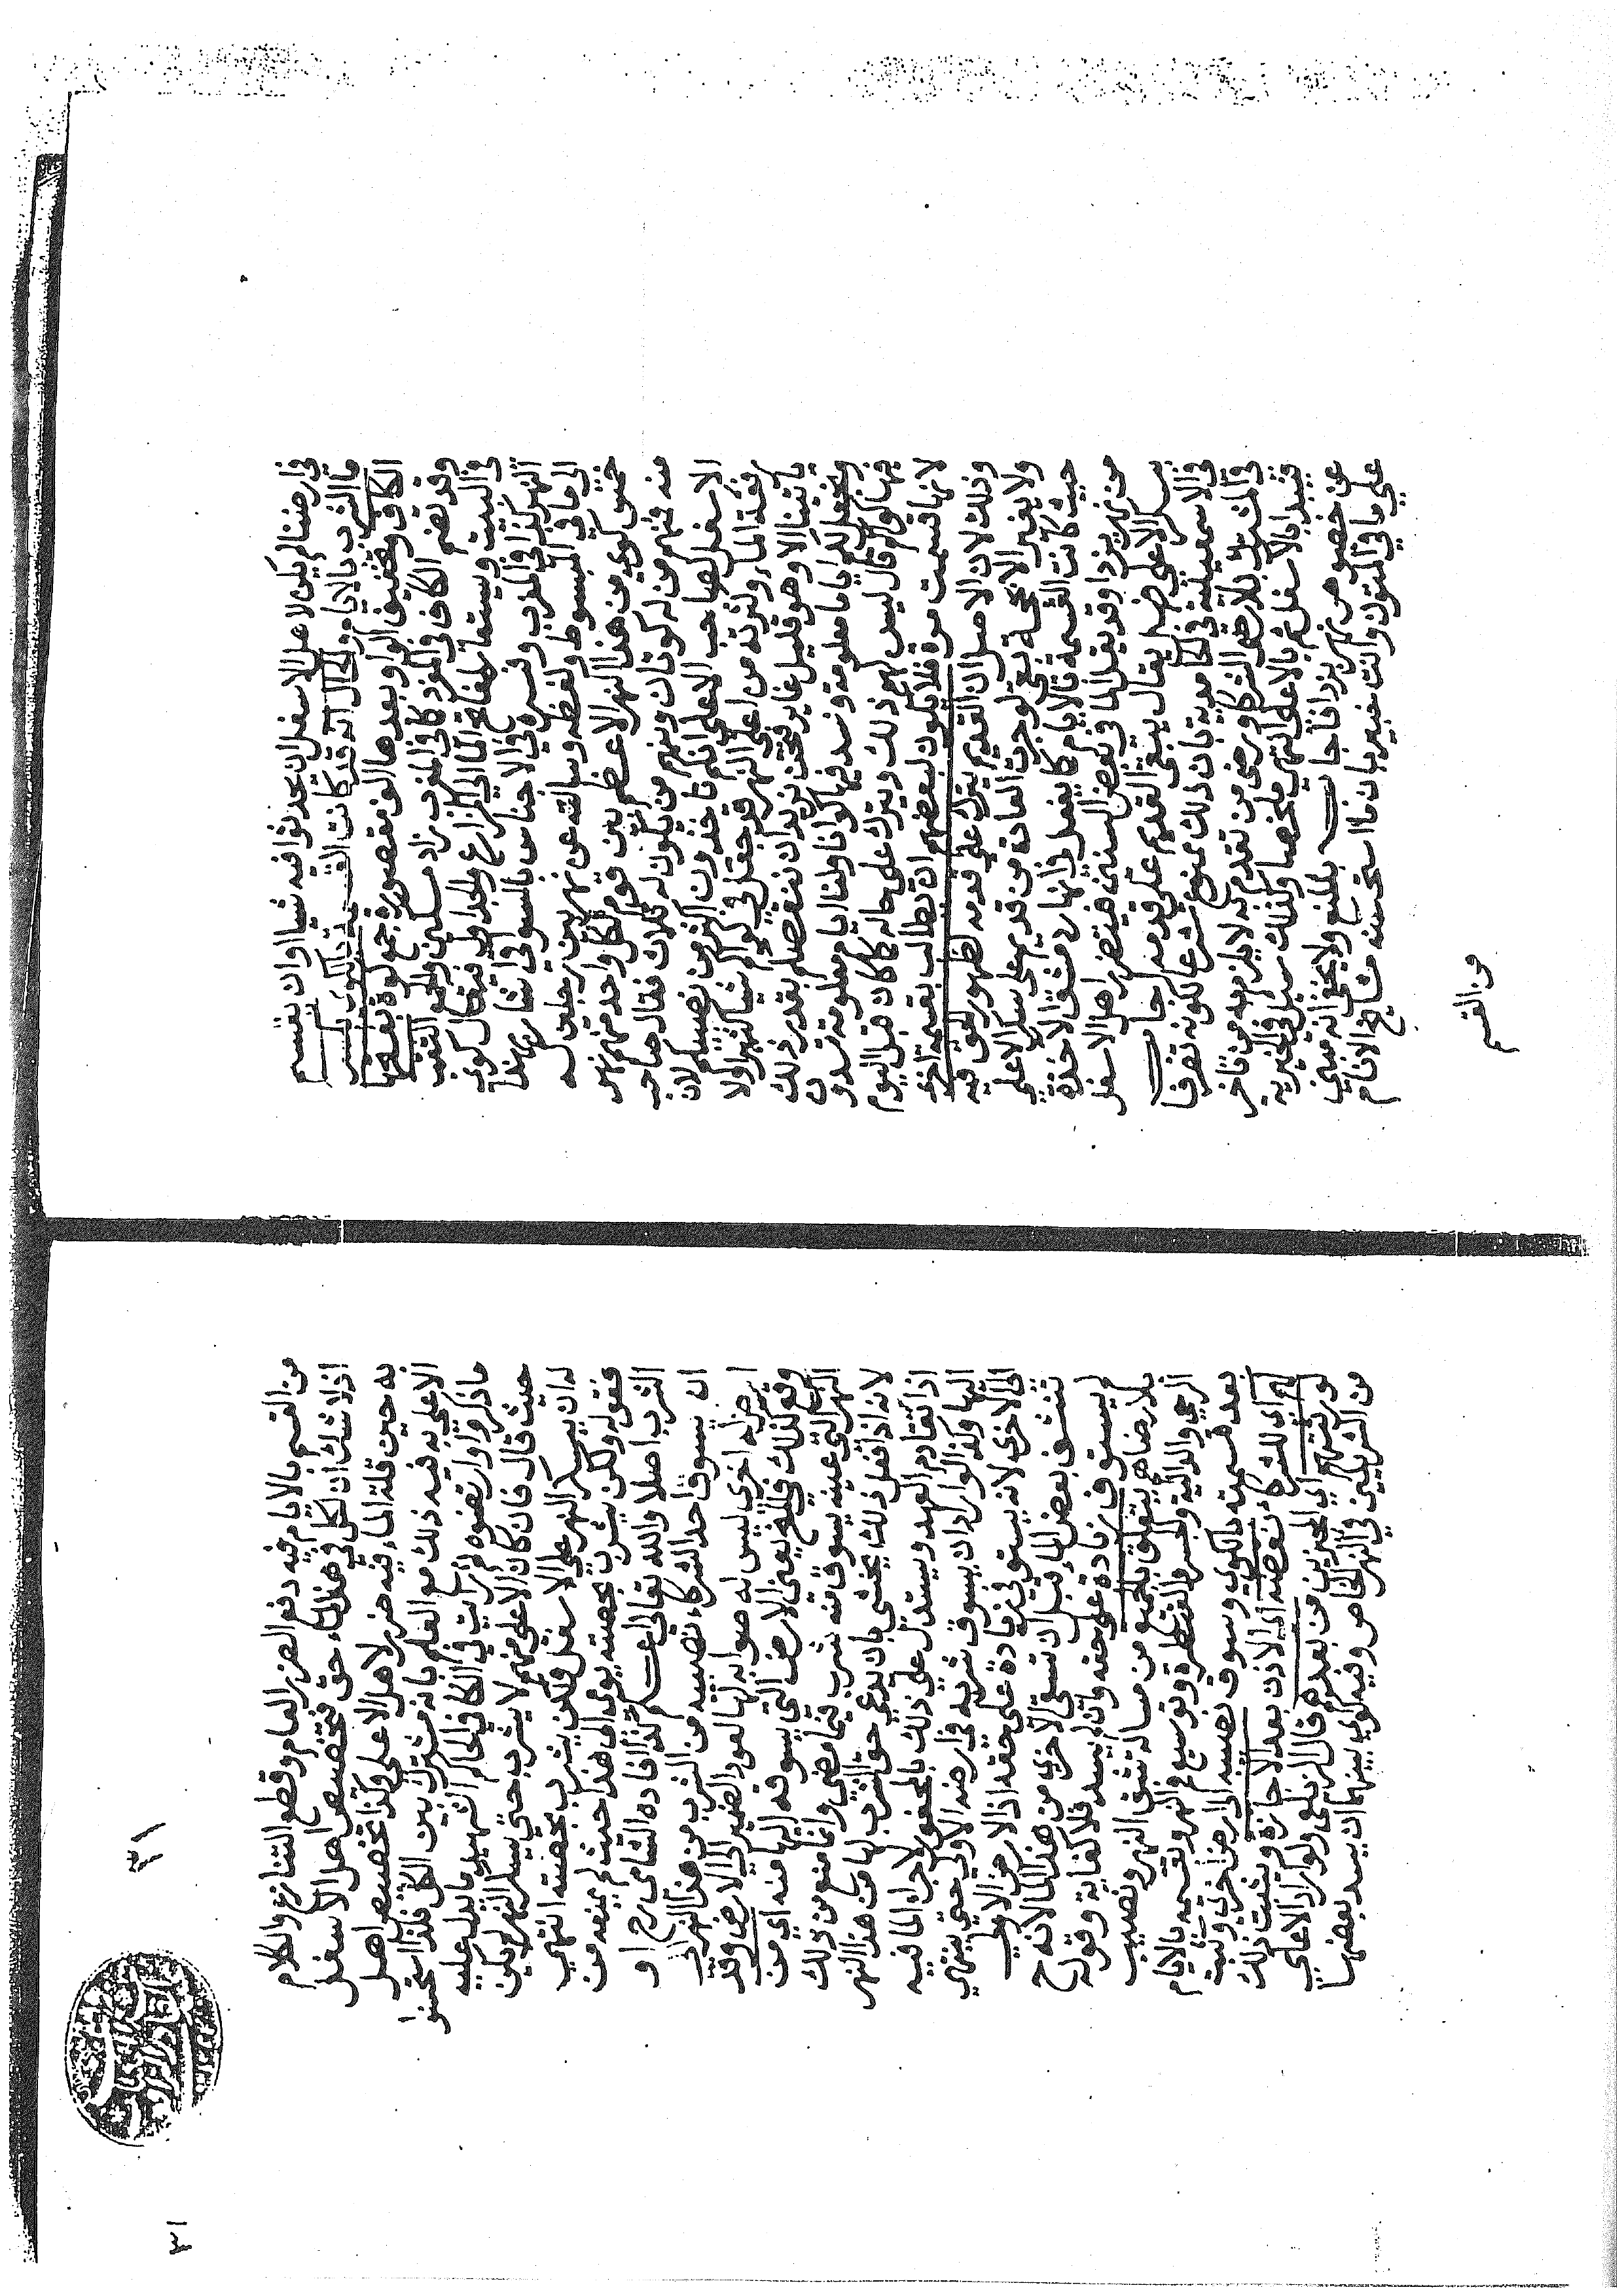 في ارضنا لم يكن لاهل الاسفل ان يحدثوا فيه شيا او ان يقسم
ما الشرب بالايام والحال انه قد كانت القسمة بالكوى بكسر
الكاف وتخفيف الواو وبعدها الف مقصورة جمع كوة بفتحها
وقد تضم الكاف في المفرد كما في المغرب زاد مسكين والجمع الثقب
في البيت ويستعار لمفاتح الماء الى المزارع والجداول فيقال كوى
النهر كذا في المغرب وفسره في الاجناس بالمسوق اشار بهذا
الى ما في المبسوط ولفظه وسالته عن نهر بين رجلين له
خمس كوى من هذا النهر الاعظم بين قوم لكل واحد منهم نهر
منه فمنهم من له كوتان ومنهم من يكون له ثلاث فقال صاحب
الاسفل لصاحب الاعلى انكم تاخذون اكثر من نصيبكم لان
دفعة الماء وكثرته من اعلى النهر قد جعل في كواكم شيا كثيرا ولا
ياتينا الا وهو قليل غاير فنحن نريد ان ننقصكم بقدر ذلك
ونجعل لكم اياما معلومة ونسد فيها كوانا ولنا ايام معلومة تسدون
فيها كواكم قال ليس لهم ذلك ويترك على حاله كما كان قبل اليوم
لانها قسمت مرة فلا يكون لبعضهم ان تطالب بقسمة اخرى
وذلك لان الاصل ان القديم يترك على قدمه لظهور الحق فيه
ولا يغير الا بحجة بقي لو جرت العادة من قديم على سكر الاعلى
حيث كانت القسمة بالايام كما يفعل في انهار دمشق الاخذة
من نهر يزد وقد يقل الماء في بعض السنين فيتضرر اهل الاسفل
بسكر الاعلى فهل يقال يبقى القديم على قدمه اجاب
في الاسمعيلية في الحامدية بان ذلك ممنوع شرعا لكونه تصرفا
في المشترك بلا رضى الشركاء ورضى من تقدم به لا يلزم به من تاخر
فيبدا بالاسفل ثم بالاعلى انتهى ملخصا وكذلك سئل في الخيرية
عن خصوص نهر يزد فاجاب بالمنع ولا يخفى انه مبني
على ما في المتون وانت خبير بان ما استحسنه مشايخ الانام
من القسم
٣١
٣١
من القسم بالايام فيه دفع الضرر العام وقطع التنازع والكلام
اذ لا شك ان لكل في هذا الماء حق فتخصيص اهل الاسفل
به حين قلة الماء فيه ضرر لاهل الاعلى وكذا تخصيص اهل
الاعلى به فيه ذلك مع العلم بانه مشترك بين الكل فلذا استحسنوا
ما ذكروا وارتضوه ثم رايت في الكافي للحاكم الشهيد ما يدل عليه
حيث قال فان كان الاعلى منهم لا يشرب حتى يسكر النهر لم يكن
له ان يسكر النهر على الاسفل ولكن يشرب بحصته انتهى
فقوله ولكن يشرب بحصته يومى الى هذا حيث لم يمنعه من
الشرب اصلا والله تعالى اعلم كذا افاده الشامى رح او
ان يسوق احد الشركاء نصيبه من الشرب من هذا النهر الى
ارض له اخرى ليس له صوابه لها لعود الضمير الى الارض وقد
وقع كذلك في الملغم يعنى الارض التي يسوقه اليها منه اي من
النهر التي عينه يسوق منه شرب فيما مضى وانما منع من ذلك
لانه اذا فعل ذلك يخشى بان يدعى حق الشرب لها من هذا النهر
اذا تقادم العهد ويستدل على ذلك بالحفر لاجراء الماء فيه
اليها وكذا لو اراد ان يسوق شربه في ارضه الاولى حتى ينتهى
الى الاخرى لانه يستوفى زيادة على حقه اذ الارض الاولى
تنشف بعض الماء قبل ان تسقى الاخرى من هذا الماء لانه ح
يستوفى زيادة على حقه وان لم يسد فلا كفاية وقوله
بلا رضاهم يتعلق بالجميع من مسالة شق النهر ونصب
الرحى والدالية والجسر والقنطرة وتوسيع فم النهر وقسمته بالايام
بعد قسمته بالكوى وسوق نصيبه الى ارض اخرى وليت
لهم اى للشركاء نقضه اى الاذن بعد الاجازة ويثبت ذلك
لورثتهم اى المجيزين من بعدهم قال الزيلعى ولو اراد الاعلى
من الشريكين في النهر الخاص وفيه كوى بينهما ان يسد بعضها